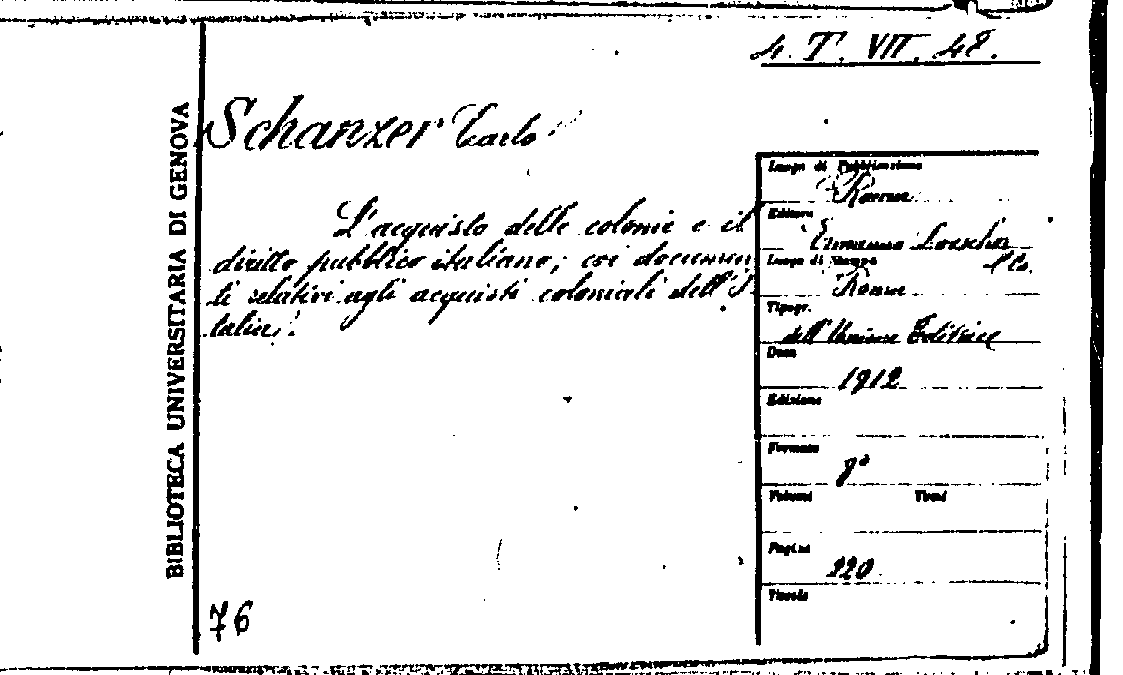 4. T. VII. 48.
BIBLIOTECA UNIVERSITARIA DI GENOVA
Schanzer Carlo
L'acquisto delle colonie e il
diritto pubblico italiano; coi documen
ti relativi agli acquisti coloniali dell'I
talia.
76
Luogo di Pubblicazione
Roma
Editore
Ermanno Loescher
& Co.
Luogo di Stampa
Roma
Tipogr.
dell'Unione Editrice
Data
1912
Edizione
Formato
8°
Volumi Tomi
Pagine
220
Tavole